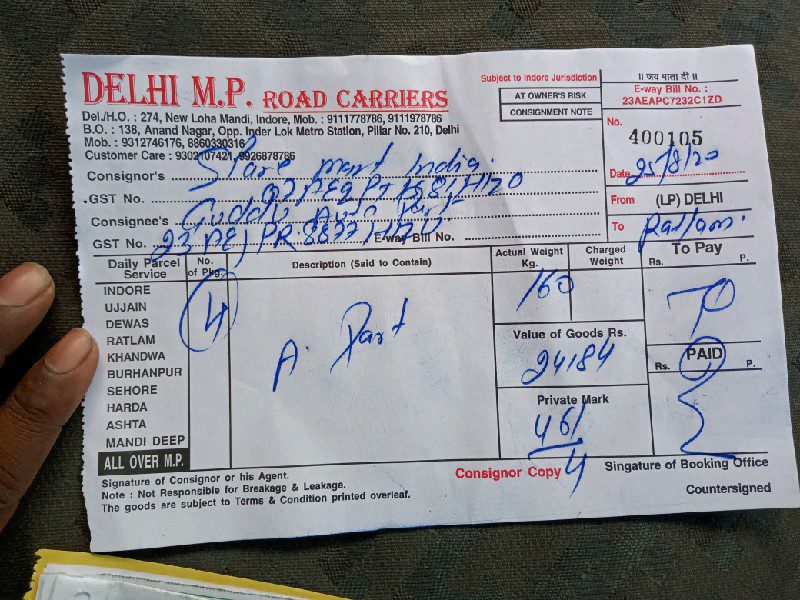 DELHI M.P. ROAD CARRIERS
Del./H.O. : 274, New Loha Mandi, Indore, Mob. : 9111778786, 9111978786
B.O. : 138, Anand Nagar, Opp. Inder Lok Metro Station, Pillar No. 210, Delhi
Mob. : 9312746176, 8860330316
Customer Care : 9302107421, 9926878786
Subject to Indore Jurisdiction
AT OWNER'S RISK
CONSIGNMENT NOTE
॥ जय माता दी ॥
E-way Bill No. :
23AEAPC7232C1ZD
No.
400105
Date 25/8/20
From (LP) DELHI
To Ratlam
Consignor's mart India
GST No.
Consignee's Guddu Auto Part
GST No. E-way Bill No.
Daily Parcel Service
No. of Pkg.
Description (Said to Contain)
Actual Weight Kg.
Charged Weight
To Pay
Rs. P.
INDORE
UJJAIN
DEWAS
RATLAM
KHANDWA
BURHANPUR
SEHORE
HARDA
ASHTA
MANDI DEEP
ALL OVER M.P.
4
A. Part
160
Value of Goods Rs.
24184
Private Mark
461
4
PAID
Rs. P.
Signature of Consignor or his Agent.
Note : Not Responsible for Breakage & Leakage.
The goods are subject to Terms & Condition printed overleaf.
Consignor Copy
Singature of Booking Office
Countersigned